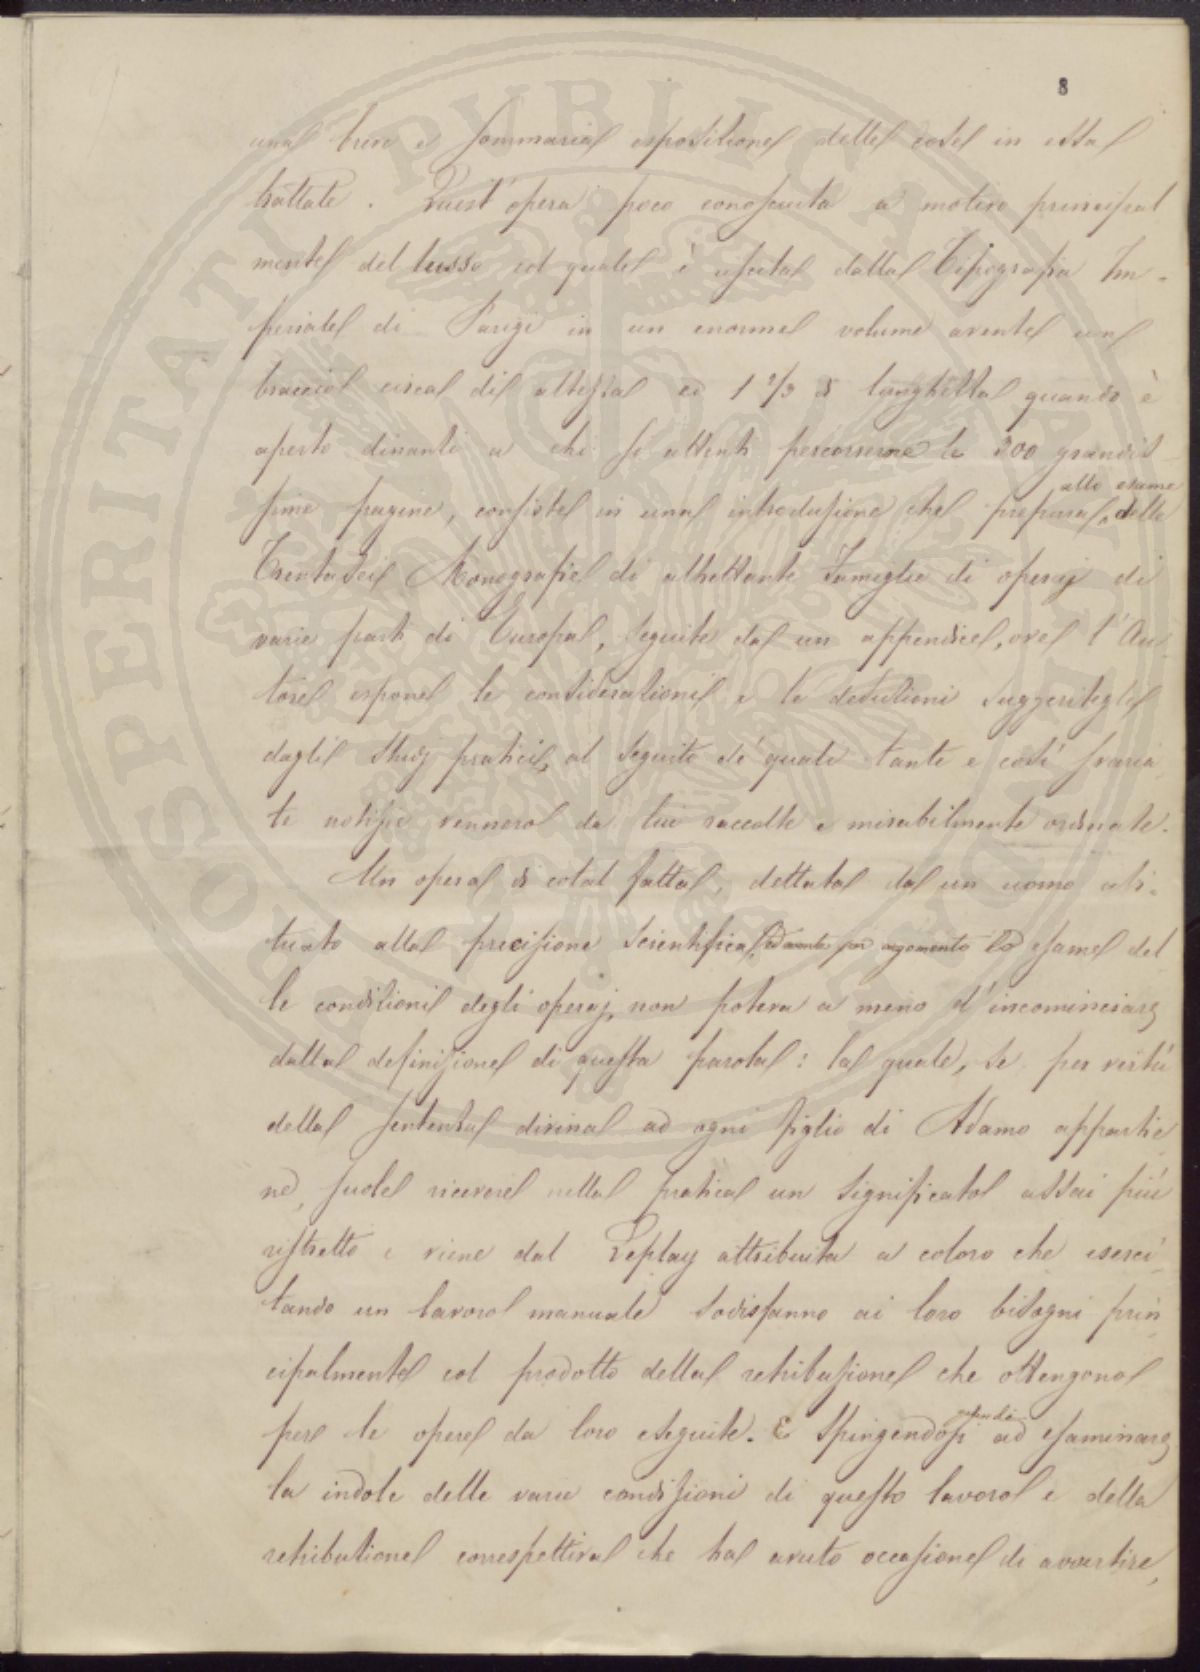 8
una breve e sommaria esposizione delle cose in essa
trattate. Quest'opera poco conosciuta a motivo principal
mente del lusso col quale è uscita dalla Tipografia Im-
periale di Parigi in un enorme volume avente un
braccio circa di altezza ed 1 2/3 di lunghezza quando è
aperto dinanti a chi si attenti percorrerne le 300 grandis
sime pagine, consiste in una introduzione che prepara allo esame delle
Trentasei Monografie di altrettante Famiglie di operaj di
varie parti di Europa, seguite da un appendice, ove l'Au-
tore espone le considerazioni e le deduzioni suggeritegli
dagli studj pratici, al seguito de' quali tante e così svaria
te notizie vennero da lui raccolte e mirabilmente ordinate.
Un opera di cotal fatta, dettata da un uomo abi-
tuato alla precisione scientifica, ed avente per argomento lo esame del
le condizioni degli operaj, non poteva a meno d'incominciare
dalla definizione di questa parola: la quale, se per virtù
della sentenza divina ad ogni figlio di Adamo appartie
ne, suole ricevere nella pratica un significato assai più
ristretto e viene dal Leplay attribuita a coloro che eserci
tando un lavoro manuale sodisfanno ai loro bisogni prin
cipalmente col prodotto della retribuzione che ottengono
per le opere da loro eseguite. E spingendosi quindi ad esaminare
la indole delle varie condizioni di questo lavoro e della
retribuzione correspettiva che ha avuto occasione di avvertire,
PROSPERITATI PVBLICAE AVGENDAE